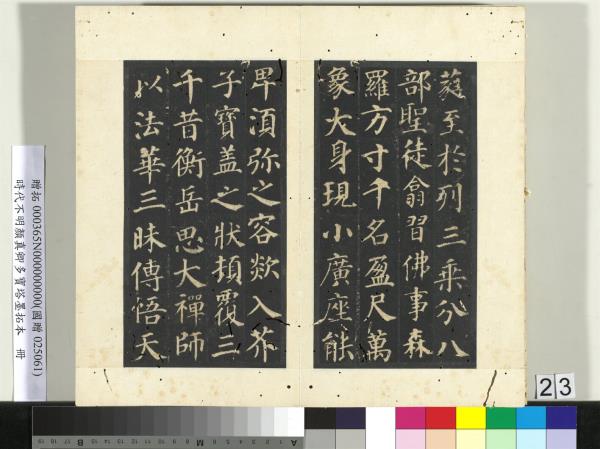 蕤至於列三乘分八
部聖徒翕習佛事森
羅方寸千名盈尺萬
象大身現小廣座能
卑須弥之容欻入芥
子寶盖之狀頓覆三
千昔衡岳思大禪師
以法華三昧傳悟天
贈拓 000365N000000000(國贈 025061)
時代不明顏真卿多寶塔墨拓本 冊
23